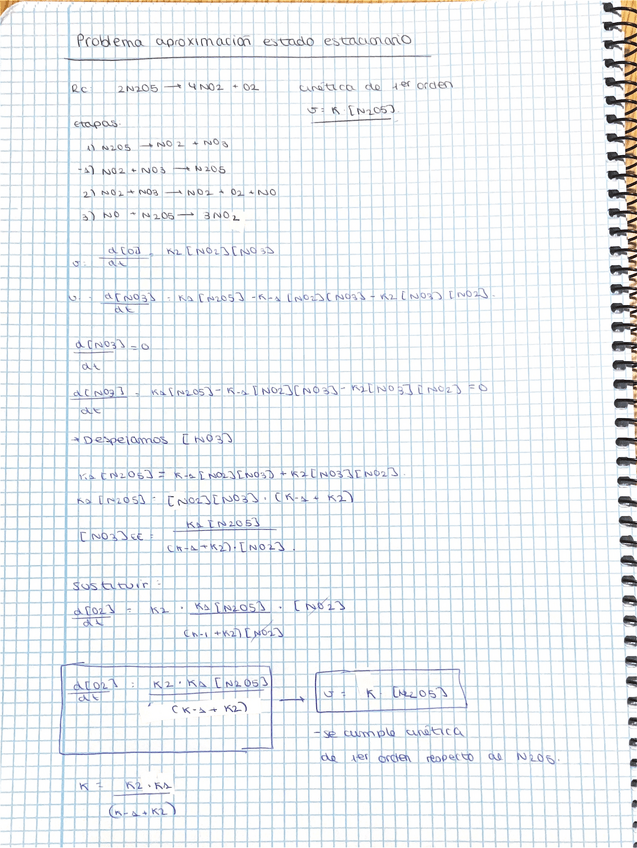 Problema aproximación estado estacionario
Rc 2N2O5 → 4NO2 + O2 cinética de 1er orden
v = K · [N2O5]
etapas.
1) N2O5 → NO2 + NO3
-1) NO2 + NO3 → N2O5
2) NO2 + NO3 → NO2 + O2 + NO
3) NO - N2O5 → 3NO2
v. d[O2]/dt = K2 [NO2][NO3]
v. d[NO3]/dt = K1 [N2O5] - K-1 [NO2][NO3] - K2 [NO3][NO2].
d[NO3]/dt = 0
d[NO3]/dt = K1[N2O5] - K-1[NO2][NO3] - K2[NO3][NO2] = 0
→ Despejamos [NO3]
K1 [N2O5] = K-1 [NO2][NO3] + K2 [NO3][NO2].
K1 [N2O5] = [NO2][NO3] · (K-1 + K2)
[NO3]cc = K1 [N2O5] / (K-1 + K2) · [NO2].
Sustituir:
d[O2]/dt = K2 · K1 [N2O5] / (K-1 + K2)[NO2] · [NO2]
d[O2]/dt = K2 · K1 [N2O5] / (K-1 + K2) → v = K · [N2O5]
- se cumple cinética
de 1er orden respecto de N2O5.
K = K2 · K1 / (K-1 + K2)